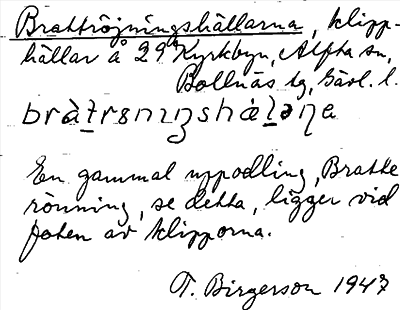 Brattröjningshällarna, klipp-
hällar å 29⁴ Kyrkbyn, Alfta sn,
Bollnäs tg, Gävl. l.
En gammal uppodling, Bratte
rönning, se detta, ligger vid
foten av klipporna.
T. Birgerson 1947